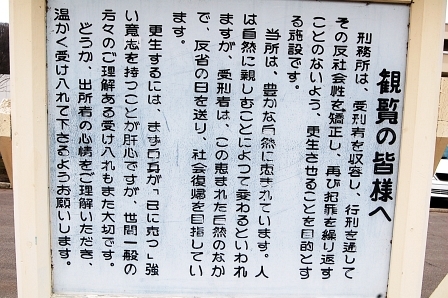 観覧の皆様へ
刑務所は、受刑者を収容し、行刑を通して
その反社会性を矯正し、再び犯罪を繰り返す
ことのないよう、更生させることを目的とす
る施設です。
当所は、豊かな自然に恵まれています。人
は自然に親しむことによって変わるといわれ
ますが、受刑者は、この恵まれた自然のなか
で、反省の日を送り、社会復帰を目指してい
ます。
更生するには、まず自身が「己に克つ」強
い意志を持つことが肝心ですが、世間一般の
方々のご理解ある受け入れもまた大切です。
どうか、出所者の心情をご理解いただき、
温かく受け入れて下さるようお願いします。